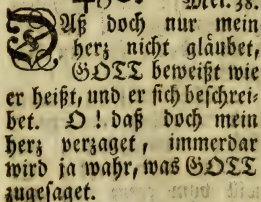 Mel. 38.
DAß doch nur mein
herz nicht gläubet,
GOTT beweißt wie
er heißt, und er sich beschrei-
bet. O! daß doch mein
herz verzaget, immerdar
wird ja wahr, was GOTT
zugesaget.